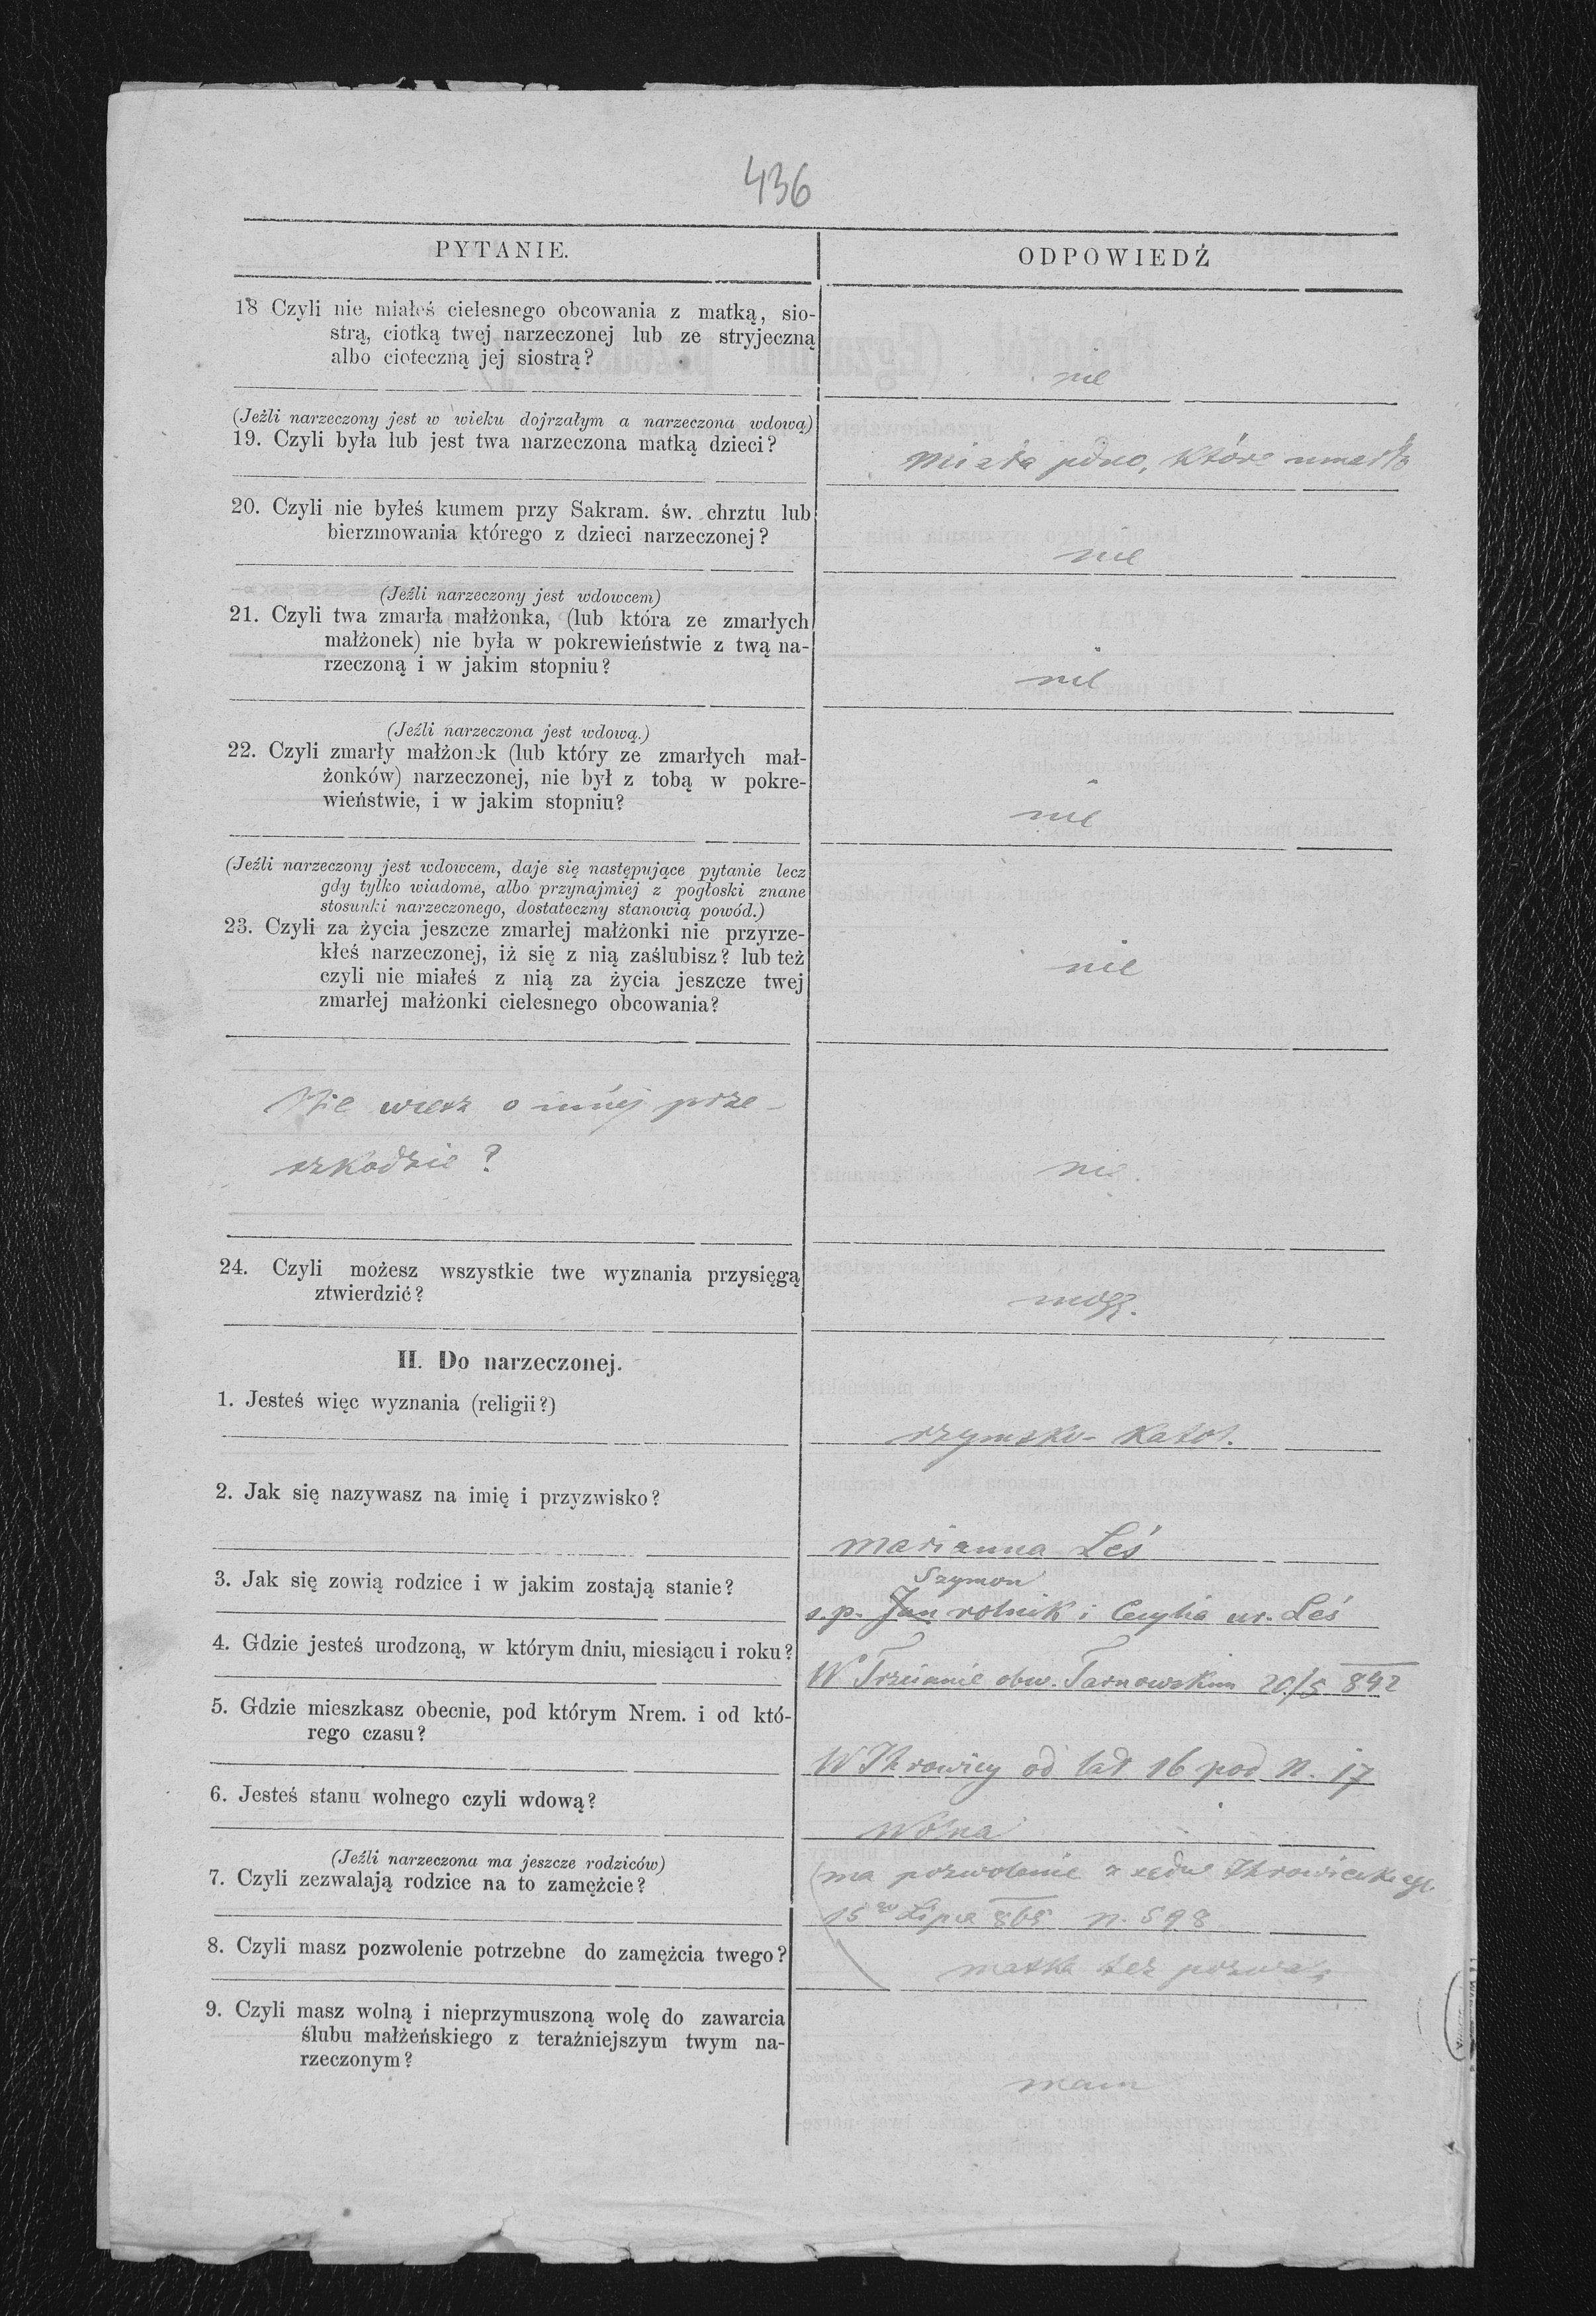 436
PYTANIE.
ODPOWIEDŹ
18 Czyli nie miałeś cielesnego obcowania z matką, sio-
strą, ciotką twej narzeczonej lub ze stryjeczną
albo cioteczną jej siostrą?
nie
(Jeżli narzeczony jest w wieku dojrzałym a narzeczona wdową)
19. Czyli była lub jest twa narzeczona matką dzieci?
miała jedno, które umarło
20. Czyli nie byłeś kumem przy Sakram. św. chrztu lub
bierzmowania którego z dzieci narzeczonej?
nie
(Jeźli narzeczony jest wdowcem)
21. Czyli twa zmarła małżonka, (lub która ze zmarłych
małżonek) nie była w pokrewieństwie z twą na-
rzeczoną i w jakim stopniu?
nie
(Jeźli narzeczona jest wdową.)
22. Czyli zmarły małżonek (lub który ze zmarłych mał-
żonków) narzeczonej, nie był z tobą w pokre-
wieństwie, i w jakim stopniu?
nie
(Jeźli narzeczony jest wdowcem, daje się następujące pytanie lecz
gdy tylko wiadome, albo przynajmiej z pogłoski znane
stosunki narzeczonego, dostateczny stanowią powód.)
23. Czyli za życia jeszcze zmarłej małżonki nie przyrze-
kłeś narzeczonej, iż się z nią zaślubisz? lub też
czyli nie miałeś z nią za życia jeszcze twej
zmarłej małżonki cielesnego obcowania?
nie
Nie wiesz o innéj prze-
szkodzie?
nie.
24. Czyli możesz wszystkie twe wyznania przysięgą
ztwierdzić?
mogę.
II. Do narzeczonej.
1. Jesteś więc wyznania (religii?)
rzymsko-katol.
2. Jak się nazywasz na imię i przyzwisko?
Marianna Leś
3. Jak się zowią rodzice i w jakim zostają stanie?
Szymon
s.p. Jan rolnik i Cecylia ur. Leś
4. Gdzie jesteś urodzoną, w którym dniu, miesiącu i roku?
W Trzcianie obw. Tarnowskim 20/5 842
5. Gdzie mieszkasz obecnie, pod którym Nrem. i od któ-
rego czasu?
W Ihrowicy od lat 16 pod N. 17
6. Jesteś stanu wolnego czyli wdową?
Wolna
(Jeźli narzeczona ma jeszcze rodziców)
7. Czyli zezwalają rodzice na to zamężcie?
ma pozwolenie z sądu Ihrowickiego
15go Lipca 868 n. 598
8. Czyli masz pozwolenie potrzebne do zamężcia twego?
matka też
9. Czyli masz wolną i nieprzymuszoną wolę do zawarcia
ślubu małżeńskiego z teraźniejszym twym na-
rzeczonym?
mam